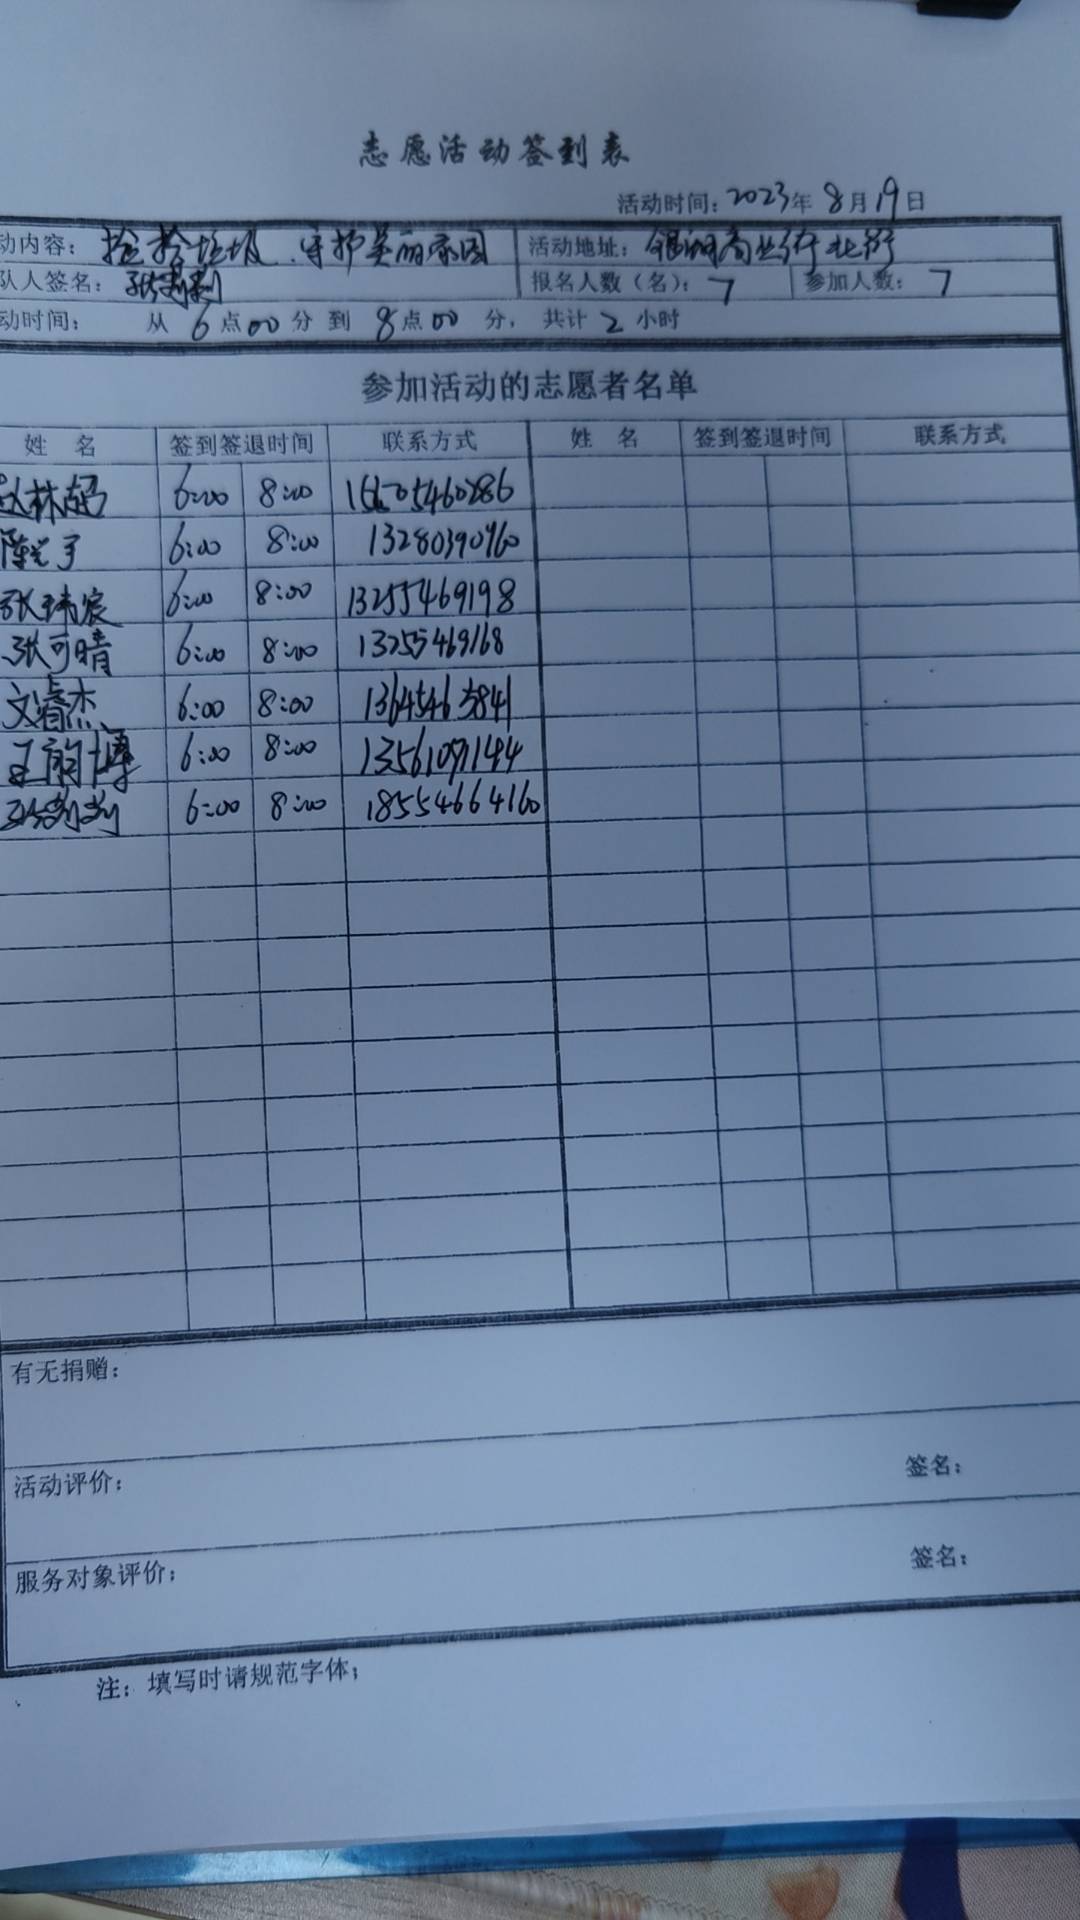 志愿活动签到表
活动时间：2023年8月19日
动内容：捡拾垃圾.守护美丽家园 活动地址：银湖商业街北街
队人签名： 报名人数（名）：7 参加人数：7
动时间： 从6点00分到8点00分，共计2小时
参加活动的志愿者名单
姓 名 签到签退时间 联系方式 姓 名 签到签退时间 联系方式
6:00 8:00 15605460286
6:00 8:00 13280390960
张玮宸 6:00 8:00 13255469198
张可晴 6:00 8:00 13255469168
文睿杰 6:00 8:00 13645463841
6:00 8:00
6:00 8:00 18554664160
有无捐赠：
活动评价： 签名：
服务对象评价： 签名：
注：填写时请规范字体；